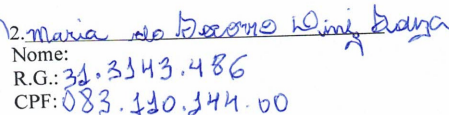 2. Maria do Socorro Diniz
Nome:
R.G.: 31.3143.486
CPF: 083.110.144.00